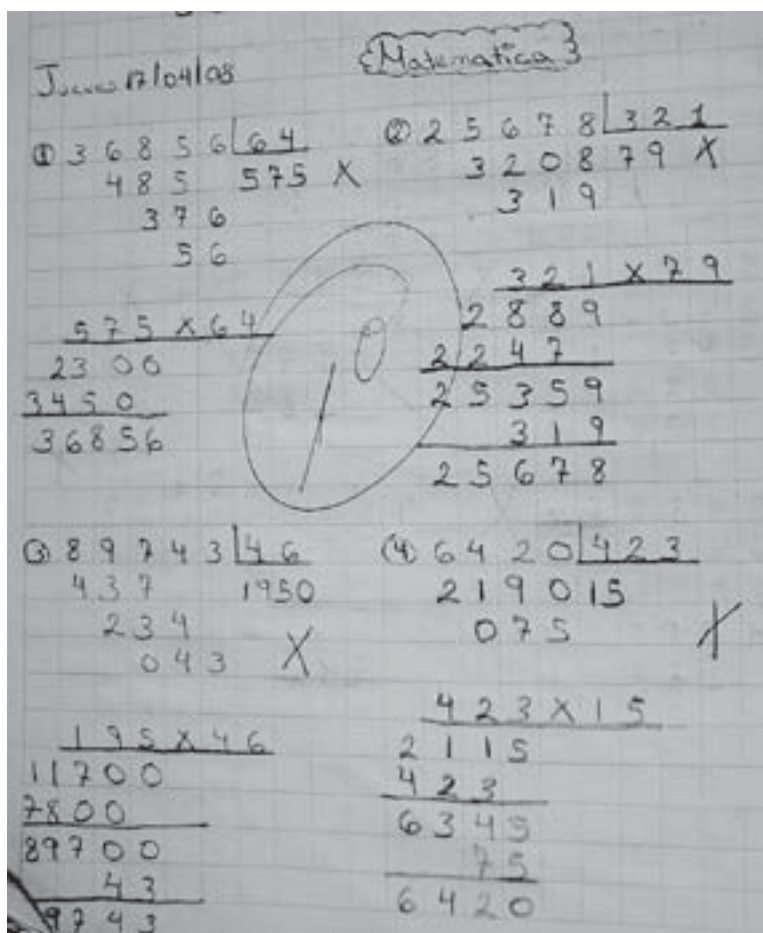 Matematica
Jueves 17/04/08
① 3 6 8 5 6 | 6 4
4 8 5 575 X
3 7 6
5 6
5 7 5 X 6 4
2 3 0 0
3 4 5 0
3 6 8 5 6
② 2 5 6 7 8 | 3 2 1
3 2 0 8 7 9 X
3 1 9
3 2 1 X 7 9
2 8 8 9
2 2 4 7
2 5 3 5 9
3 1 9
2 5 6 7 8
10
③ 8 9 7 4 3 | 4 6
4 3 7 1950
2 3 4
0 4 3 X
1 9 5 X 4 6
1 1 7 0 0
7 8 0 0
8 9 7 0 0
4 3
9 7 4 3
④ 6 4 2 0 | 4 2 3
2 1 9 0 15
0 7 5 X
4 2 3 X 1 5
2 1 1 5
4 2 3
6 3 4 5
7 5
6 4 2 0